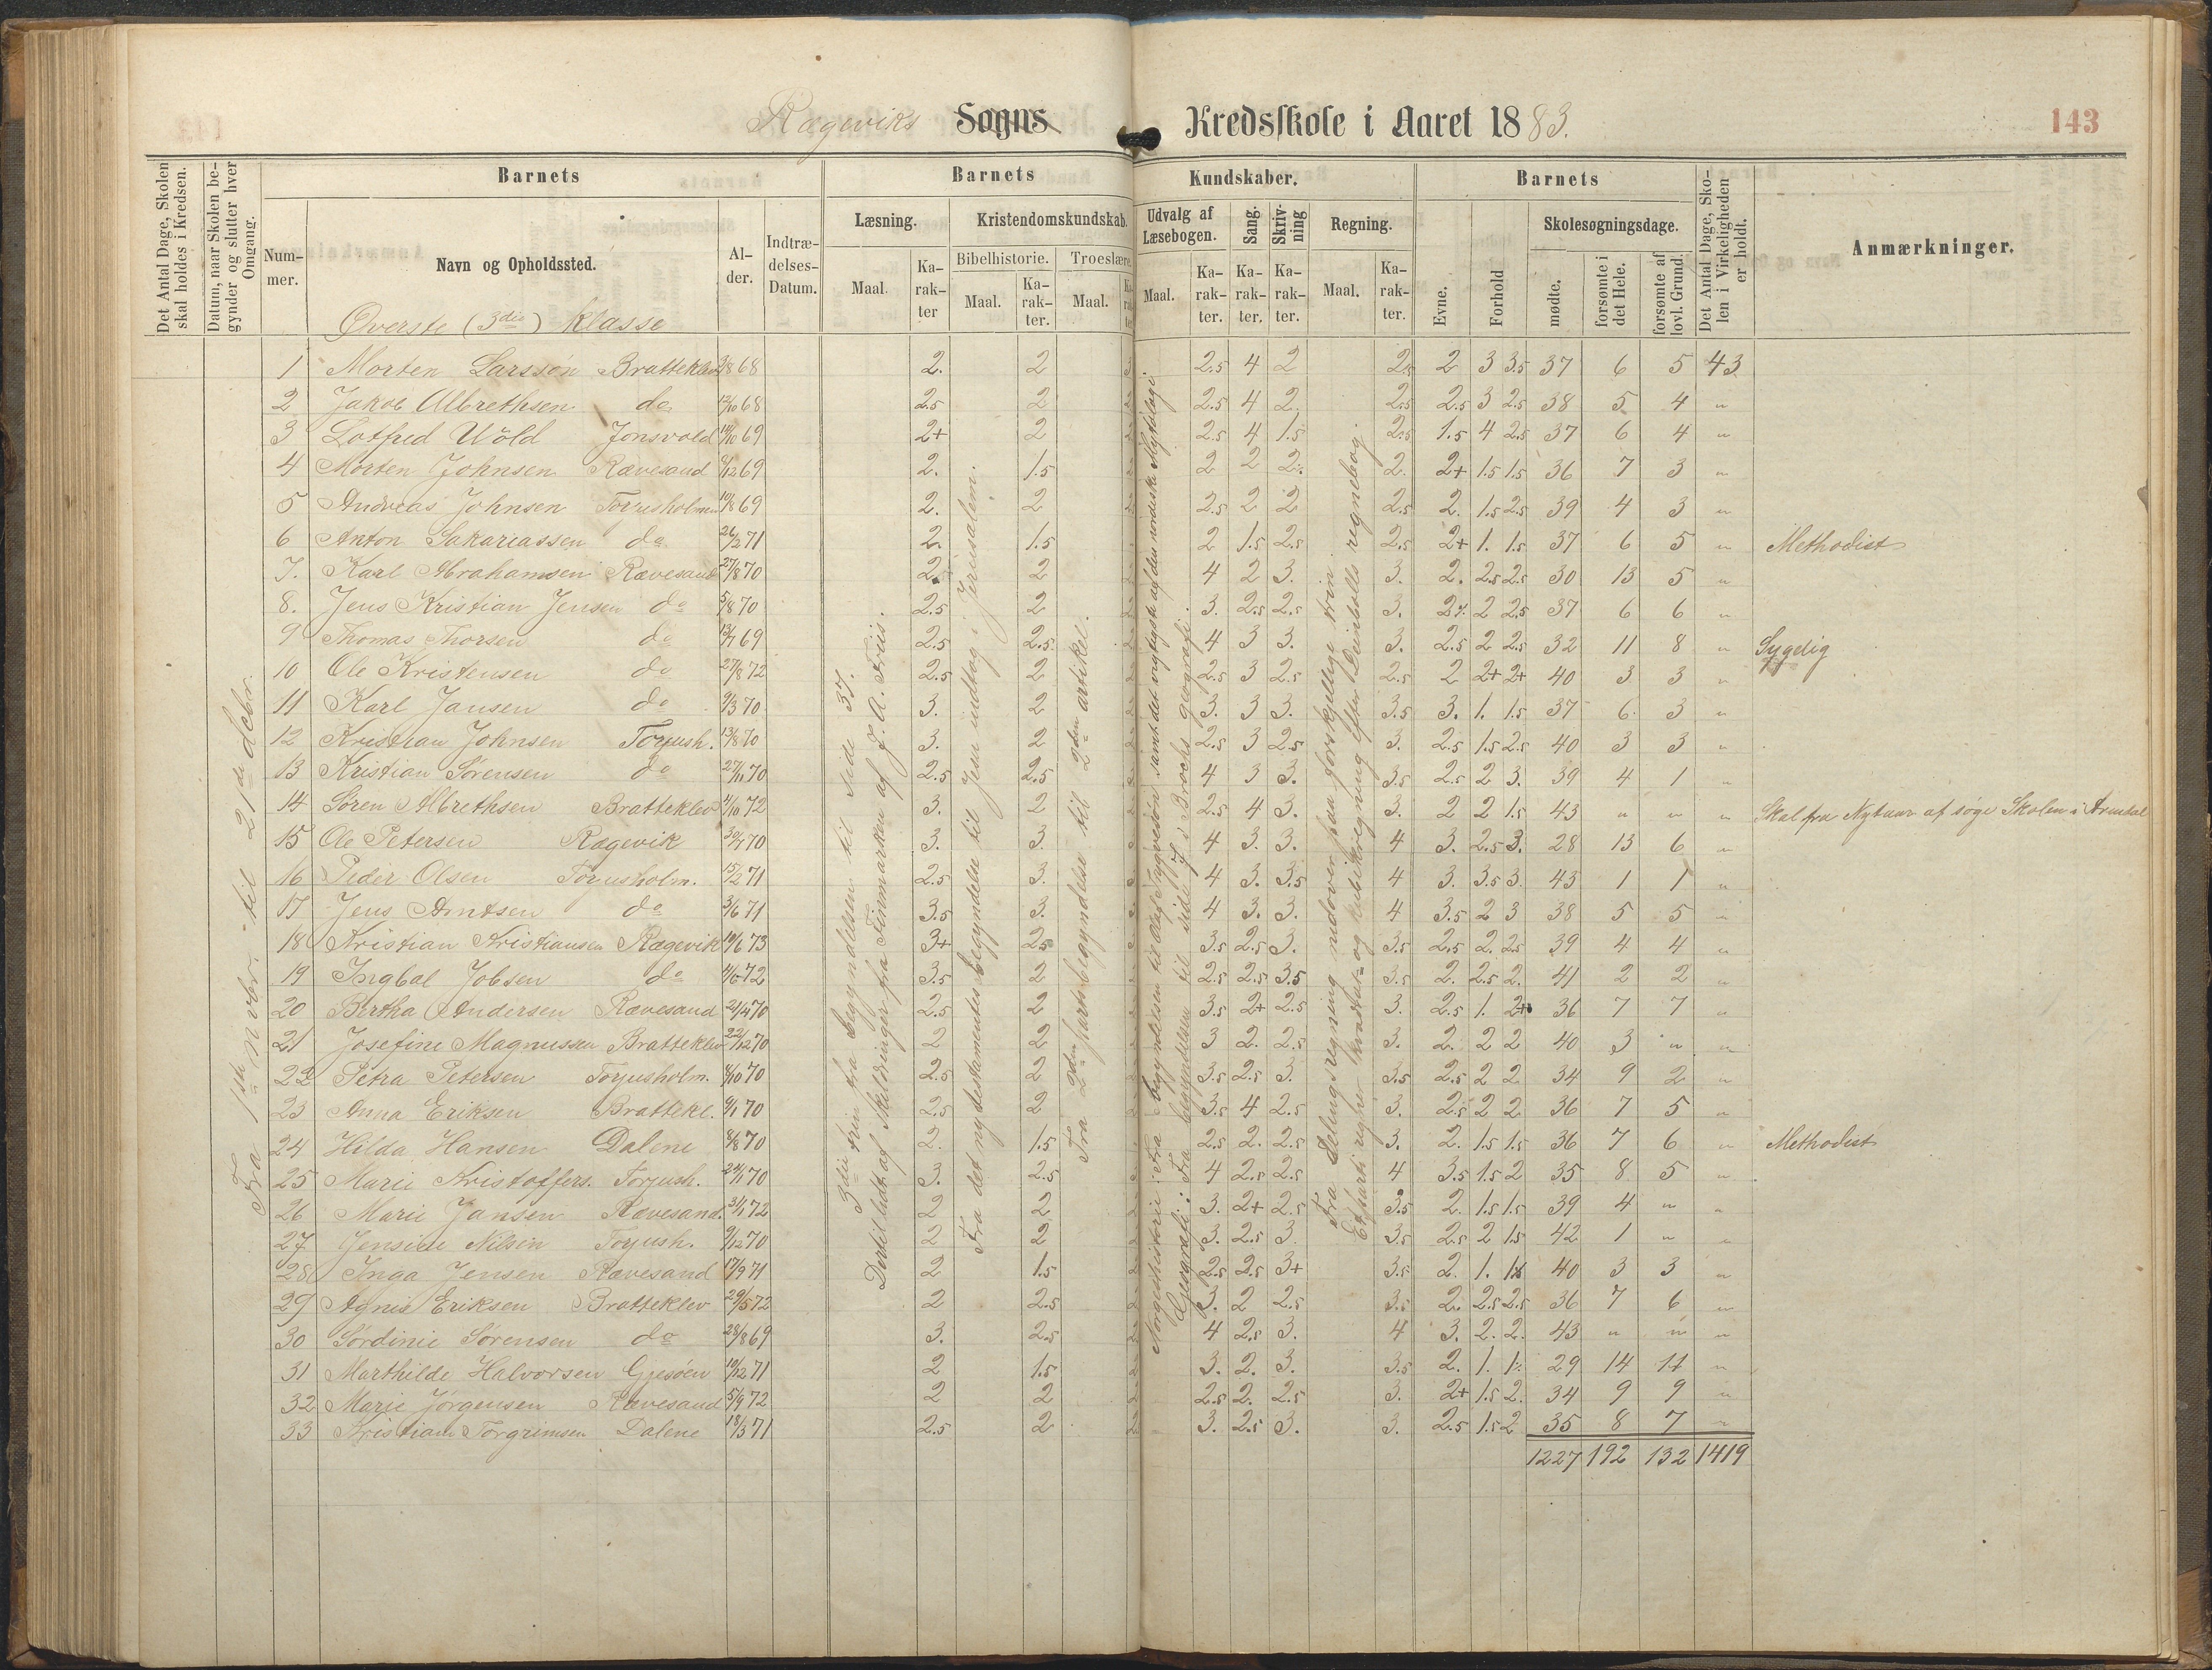 Rægeviks Sogns Kredsskole i Aaret 1883.
143
Det Antal Dage, Skolen skal holdes i Kredsen.
Datum, naar Skolen begynder og slutter hver Omgang.
Barnets
Nummer.
Navn og Opholdssted.
Alder.
Indtrædelses-Datum.
Barnets Kundskaber.
Læsning.
Maal.
Karakter
Kristendomskundskab.
Bibelhistorie.
Maal.
Karakter.
Troeslære
Maal.
Udvalg af Læsebogen.
Maal.
Karakter.
Sang.
Karakter.
Skrivning
Karakter.
Regning.
Maal.
Karakter.
Barnets
Evne.
Forhold
Skolesøgningsdage.
mødte.
forsømte i det Hele.
forsømte af lovl. Grund.
Det Antal Dage, Skolen i Virkeligheden er holdt.
Anmærkninger.
Øverste (3die) Klasse
Fra 1ste Novbr. til 21de decbr.
3die trin fra begyndelsen til side 37.
Dertil lidt af Skildringer fra Finmarken af J. A. Friis.
Fra det nytestamentes begyndelse til Jesu indtog i Jerusalem.
Fra 2den parts begyndelse til 2den artikel.
Norgeshistorie: Fra begyndelsen til Olaf Trygvesøn samt det vigtigste af den nordiske Mytologi.
Geografi: Fra begyndelsen til side 7 i Brochs geografi.
Fra Delingsregning nedover paa forskjellige trin.
Et parti regner kvadrat- og kubikregning efter Deinbolls regnebog.
1 Morten Larssøn Bratteklev 3/8 68 2. 2 2.5 4 2 2.5 2 3 3.5 37 6 5 43
2 Jakob Albrethsen do 12/10 68 2.5 2 2.5 4 2. 2.5 2.5 3 2.5 38 5 4 "
3 Lotfred Wold Jonsvold 14/10 69 2+ 2 2.5 4 1.5 2.5 1.5 4 2.5 37 6 4 "
4 Morten Johnsen Rævesand 6/12 69 2. 1.5 2 2 2% 2. 2+ 1.5 1.5 36 7 3 "
5 Andreas Johnsen Torjusholmen 10/8 69 2. 2 2.5 2 2 2.5 2. 1.5 2.5 39 4 3 "
6 Anton Sakariassen do 26/2 71 2. 1.5 2 1.5 2.5 2.5 2+ 1. 1.5 37 6 5 " Methodist
7. Karl Abrahamsen Rævesand 27/8 70 2.5 2 4 2 3. 3. 2. 2.5 2.5 30 13 5 "
8. Jens Kristian Jensen do 5/8 70 2.5 2 3. 2.5 2.5 3. 2% 2 2.5 37 6 6 "
9 Thomas Thorsen do 13/7 69 2.5 2.5 4 3 3. 3. 2.5 2 2.5 32 11 8 " Sygelig
10 Ole Kristensen do 27/8 72 2.5 2 2.5 3 2.5 2.5 2 2+ 2+ 40 3 3 "
11 Karl Jansen do 9/3 70 3. 2 3. 3 3. 3.5 3. 1. 1.5 37 6 3 "
12 Kristian Johnsen Torjush. 13/8 70 3. 2 2.5 3 2.5 3. 2.5 1.5 2.5 40 3 3 "
13 Kristian Sørensen do 27/11 70 2.5 2.5 4 3 3. 3.5 2.5 2 3. 39 4 1 "
14 Søren Albrethsen Bratteklev 4/10 72 3. 2 2.5 4 3. 3. 2 2 1.5 43 " " " Skal fra Nytaar af søge Skolen i Arendal
15 Ole Petersen Rægevik 30/7 70 3. 3. 4 3. 3. 4 3. 2.5 3. 28 13 6 "
16 Peder Olsen Torjusholm. 15/2 71 2.5 3. 4 3. 3.5 4 3. 3.5 3. 43 1 1 "
17 Jens Arntsen do 3/6 71 3.5 3. 4 3. 3. 4 3.5 2 3 38 5 5 "
18 Kristian Kristiansen Rægevik 19/6 73 3+ 2.5 3.5 2.5 3. 3.5 2.5 2. 2.5 39 4 4 "
19 Ingbal Jobsen do 4/6 72 3.5 2 2.5 2.5 3.5 3.5 2. 2.5 2. 41 2 2 "
20 Bertha Andersen Rævesand 21/4 70 2.5 2 3.5 2+ 2.5 3. 2.5 1. 2+ 36 7 7 "
21 Josefine Magnussen Bratteklev 22/12 70 2 2 3 2. 2.5 3. 2. 2 2 40 3 " "
22 Petra Petersen Torjusholm. 8/10 70 2.5 2 3.5 2.5 3. 3.5 2.5 2 2 34 9 2 "
23 Anna Eriksen Brattekl. 9/1 70 2.5 2 3.5 4 2.5 3. 2.5 2 2 36 7 5 "
24 Hilda Hansen Dalene 8/8 70 2. 1.5 2.5 2. 2.5 3. 2. 1.5 1.5 36 7 6 " Methodist
25 Marie Kristoffers. Torjush. 24/1 70 3. 2.5 4 2.5 2.5 4 3.5 1.5 2 35 8 5 "
26 Marie Jansen Rævesand. 31/1 72 2 2 3. 2+ 2.5 3.5 2. 1.5 1.5 39 4 " "
27 Jensine Nilsen Torjush. 9/12 70 2 2 3. 2.5 3. 3.5 2.5 2 1.5 42 1 " "
28 Inga Jensen Rævesand 17/9 71 2 1.5 2.5 2.5 3+ 3.5 2. 1. 1% 40 3 3 "
29 Agnis Eriksen Bratteklev 29/5 72 2 2.5 3. 2 2.5 3.5 2. 2.5 2.5 36 7 6 "
30 Sørdinie Sørensen do 28/8 69 3. 2.5 4 2.5 3. 4 3. 2. 2. 43 " " "
31 Marthilde Halvorsen Gjesøen 10/12 71 2 1.5 3. 2. 3. 3.5 2. 1. 1% 29 14 14 "
32 Marie Jørgensen Rævesand 5/9 72 2 2 2.5 2. 2.5 3. 2+ 1.5 2. 34 9 9 "
33 Kristiane Torgrimsen Dalene 18/3 71 2.5 2 3. 2.5 3. 3. 2.5 1.5 2 35 8 7 "
1227 192 132 1419